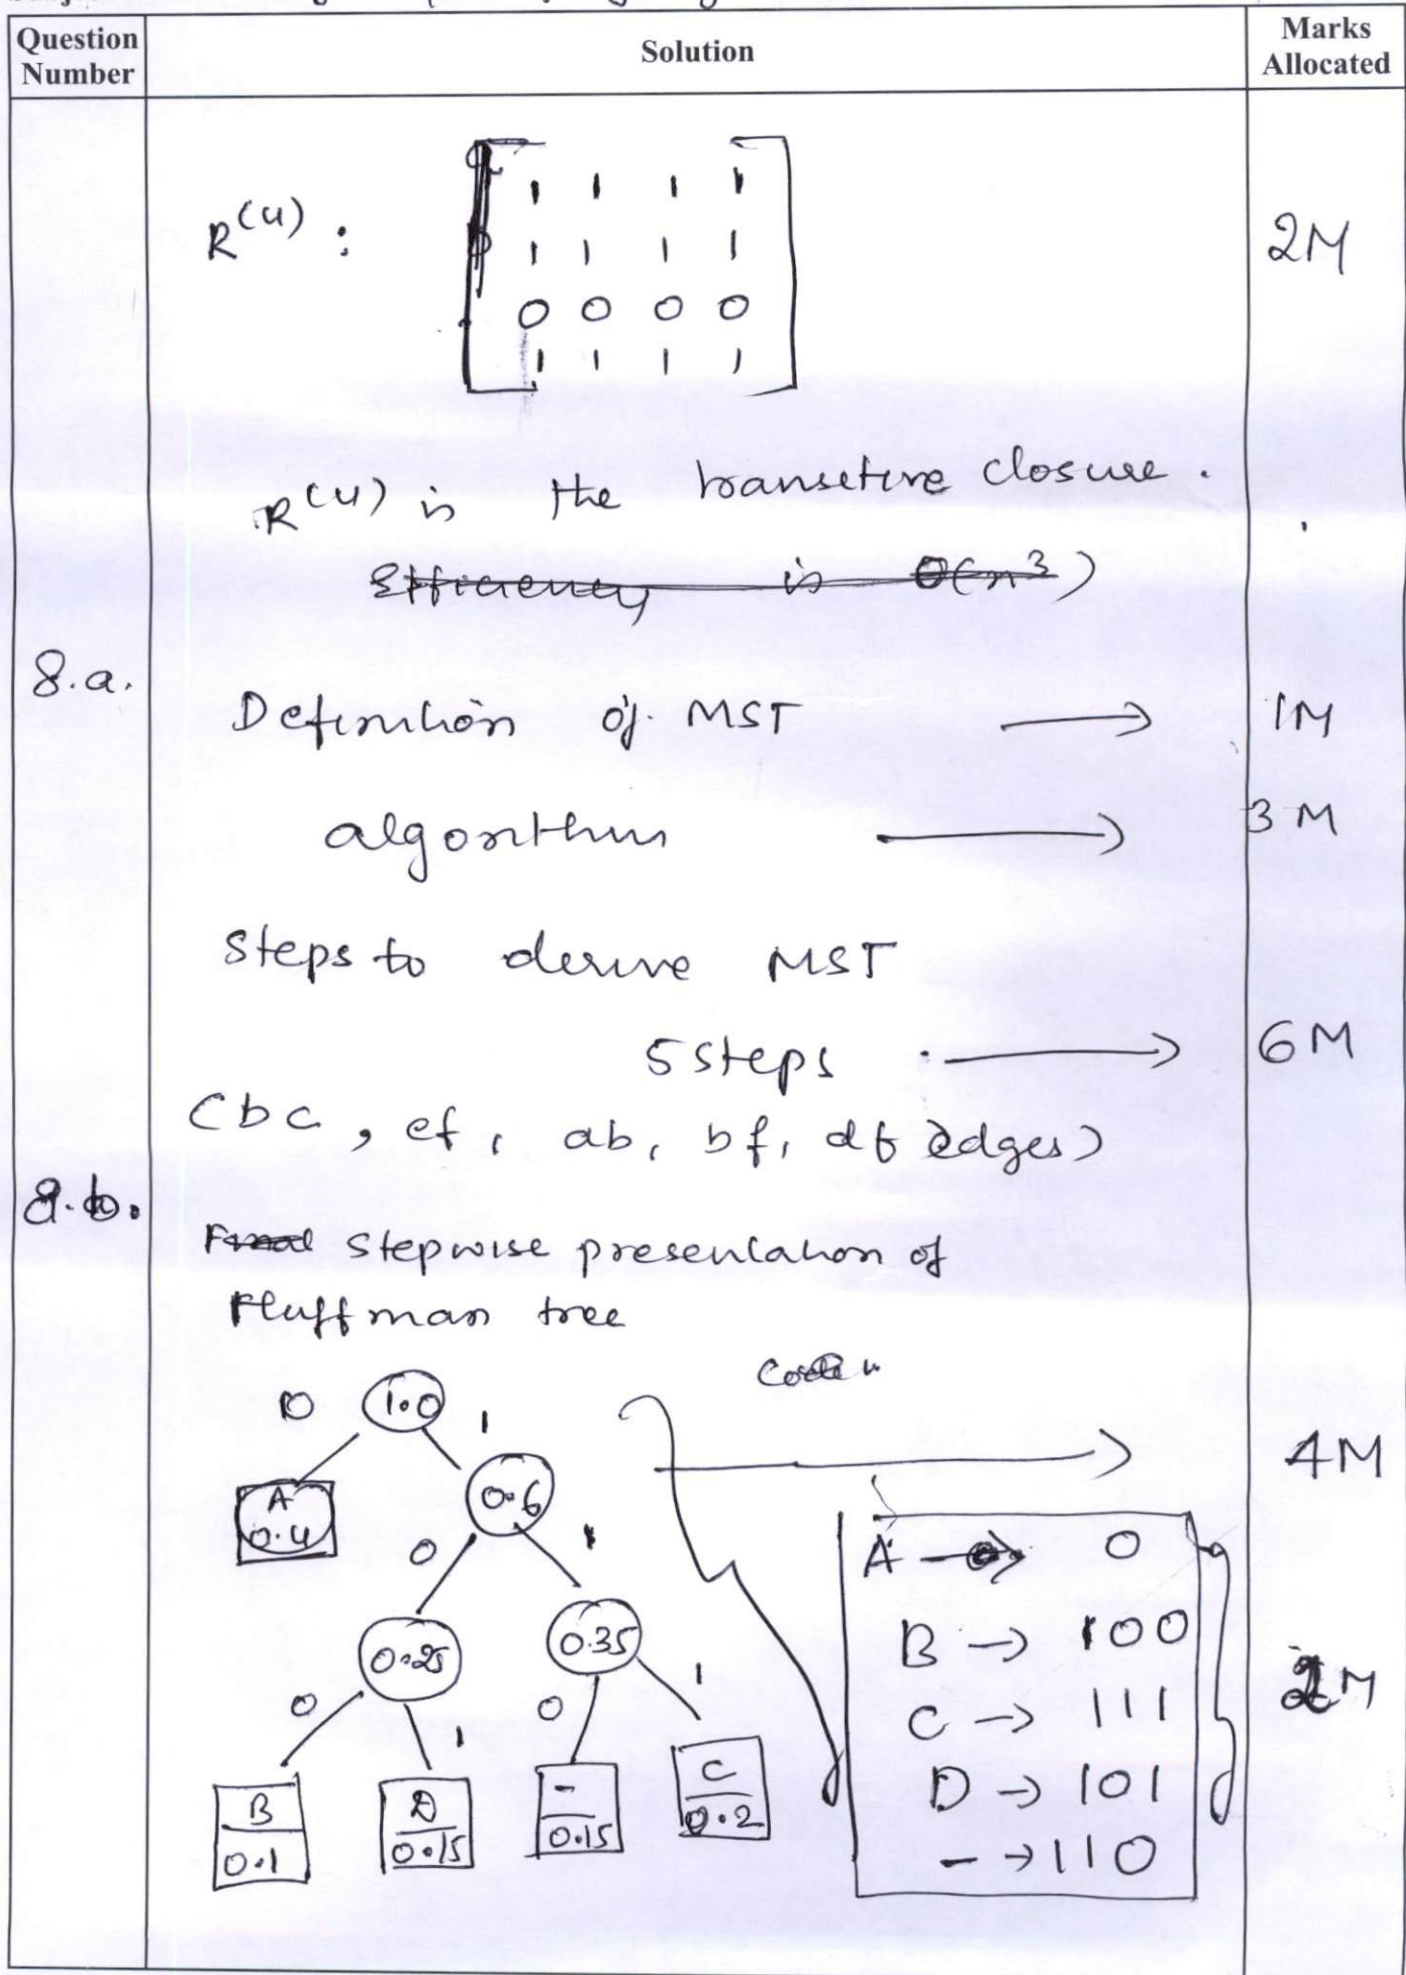 Question Number
Solution
Marks Allocated
R(4) :
1 1 1 1
1 1 1 1
0 0 0 0
1 1 1 1
2M
R(4) is the transitive closure.
Efficiency is θ(n³)
8.a.
Definition of MST → 1M
algorithm → 3M
Steps to derive MST
5 steps → 6M
(bc, ef, ab, bf, df edges)
8.b.
Final Stepwise presentation of
Huffman tree
0 1.0 1
→ 4M
A 0.4
0.6
0 1
0.25
0.35
0 1 0 1
B 0.1
D 0.15
- 0.15
C 0.2
A → 0
B → 100
C → 111
D → 101
- → 110
2M